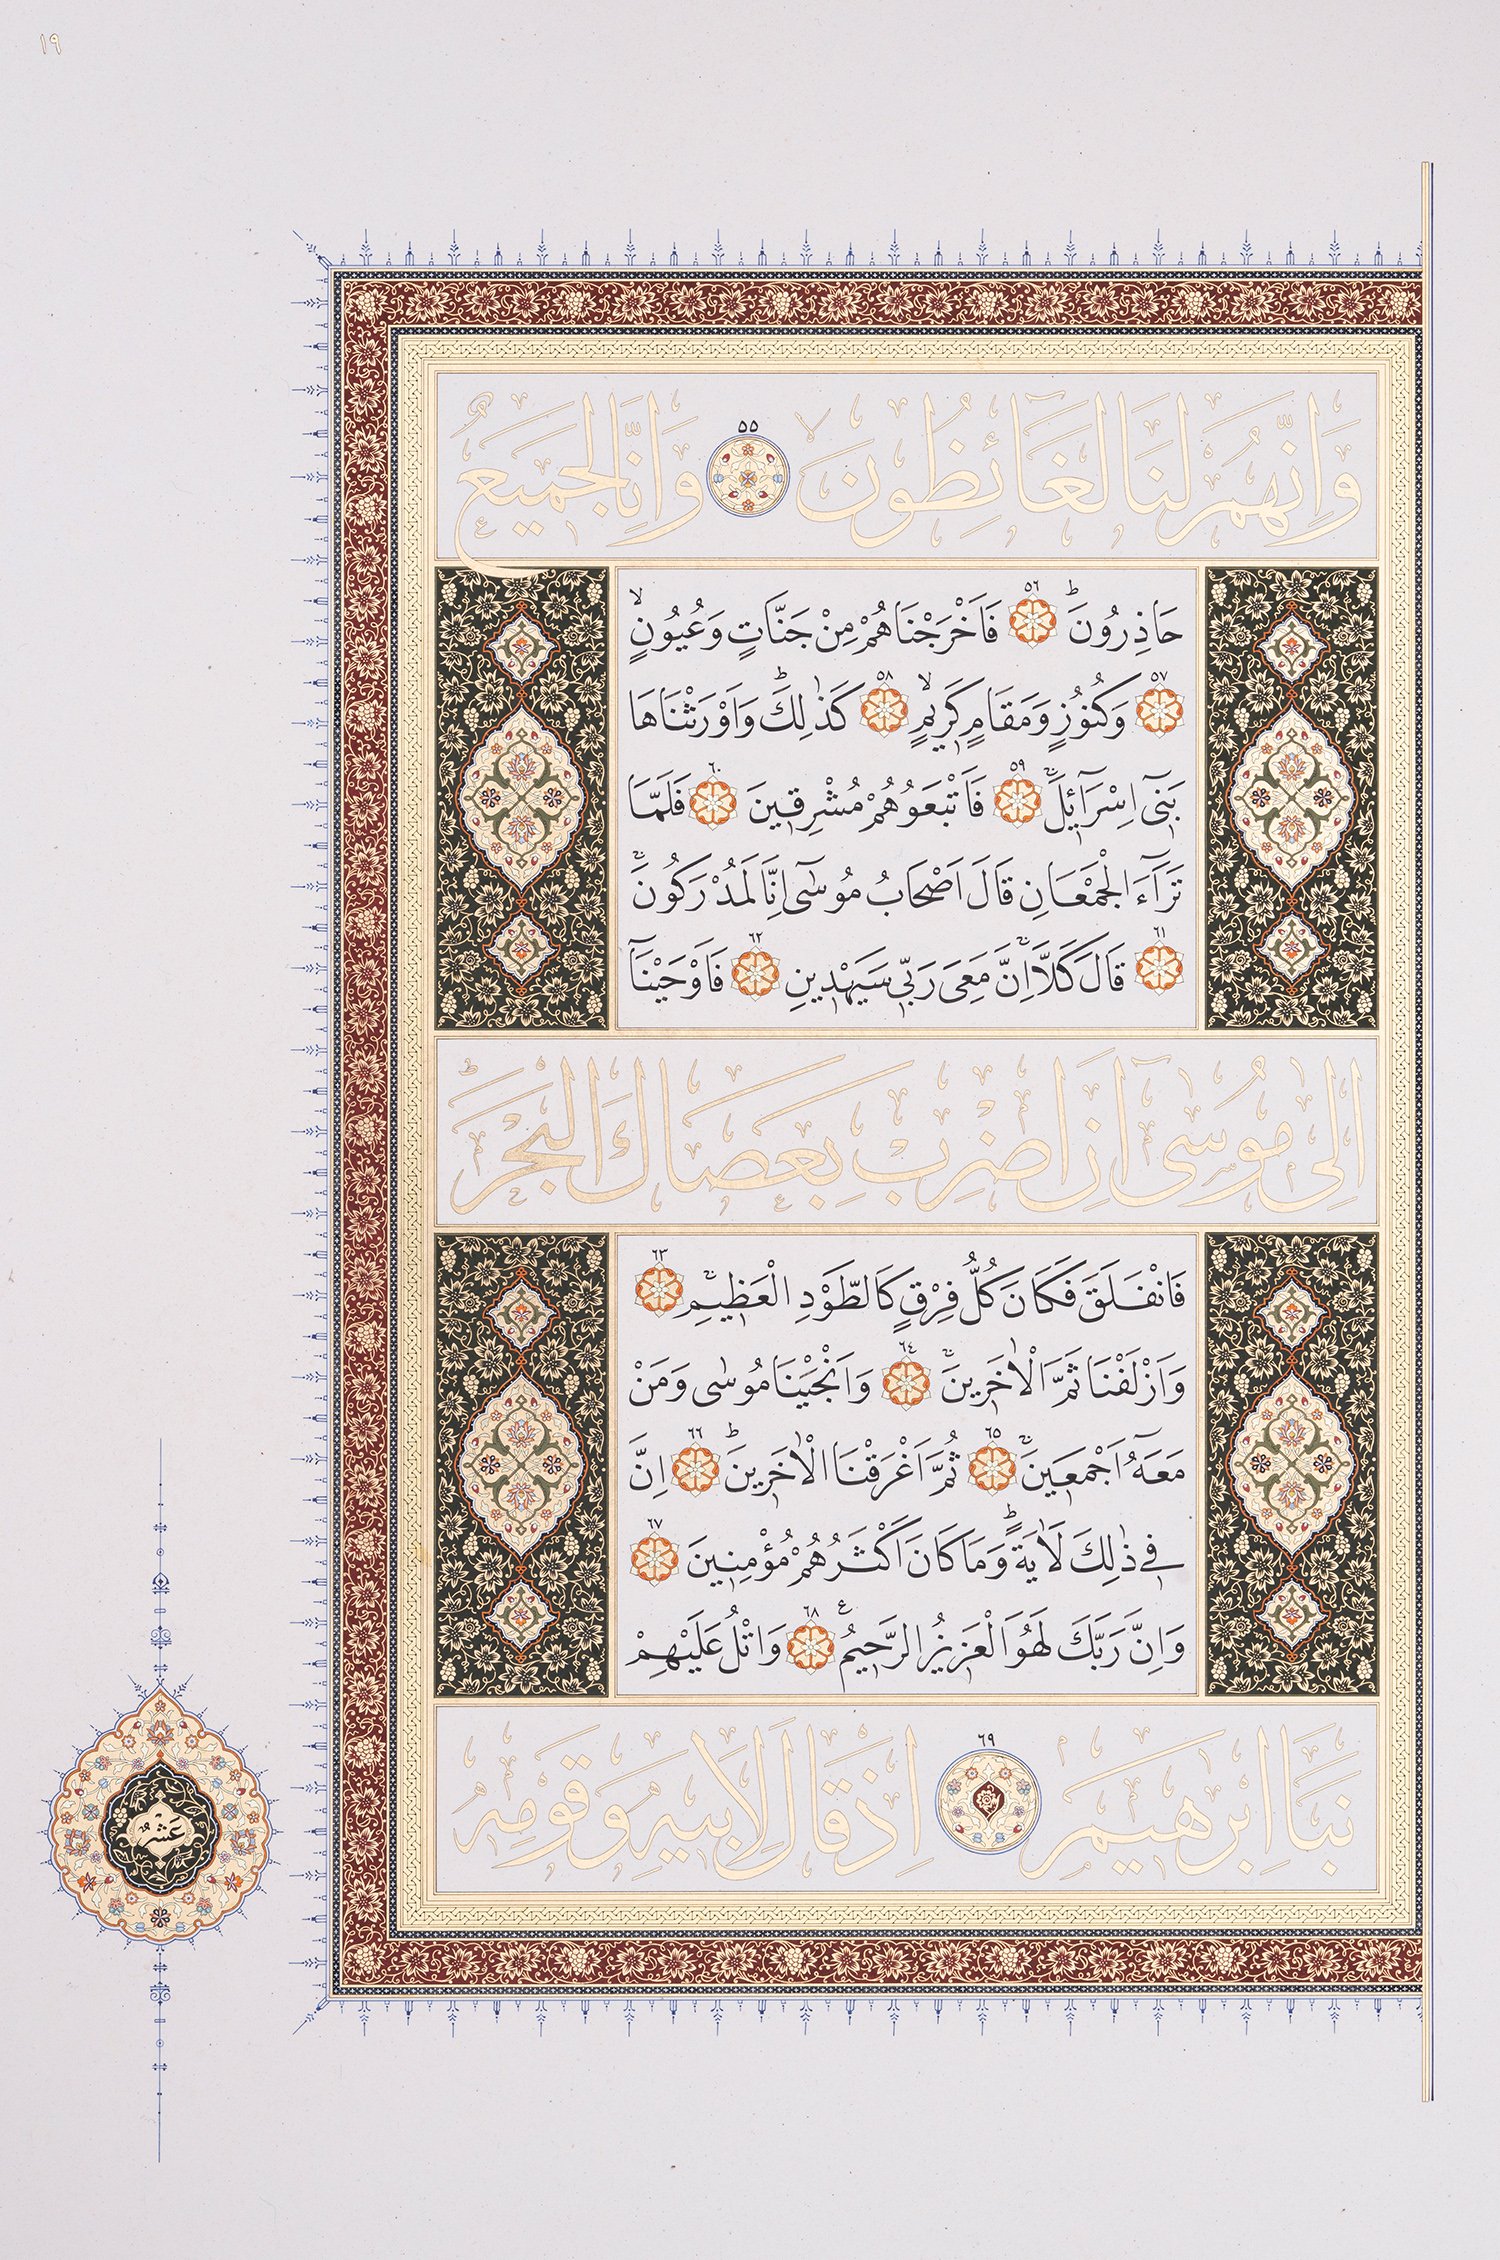 ١٩
وَاِنَّهُمْ لَنَا لَغَٓائِظُونَۙ ٥٥ وَاِنَّا لَجَم۪يعٌ
حَاذِرُونَۜ ٥٦ فَاَخْرَجْنَاهُمْ مِنْ جَنَّاتٍ وَعُيُونٍۙ
٥٧ وَكُنُوزٍ وَمَقَامٍ كَر۪يمٍۙ ٥٨ كَذٰلِكَۜ وَاَوْرَثْنَاهَا
بَن۪ٓي اِسْرَٓائ۪لَۜ ٥٩ فَاَتْبَعُوهُمْ مُشْرِق۪ينَ ٦٠ فَلَمَّا
تَرَٓاءَ الْجَمْعَانِ قَالَ اَصْحَابُ مُوسٰٓى اِنَّا لَمُدْرَكُونَۚ
٦١ قَالَ كَلَّاۚ اِنَّ مَعِيَ رَبّ۪ي سَيَهْد۪ينِ ٦٢ فَاَوْحَيْنَٓا
اِلٰى مُوسٰٓى اَنِ اضْرِبْ بِعَصَاكَ الْبَحْرَۜ
فَانْفَلَقَ فَكَانَ كُلُّ فِرْقٍ كَالطَّوْدِ الْعَظ۪يمِۚ ٦٣
وَاَزْلَفْنَا ثَمَّ الْاٰخَر۪ينَۚ ٦٤ وَاَنْجَيْنَا مُوسٰى وَمَنْ
مَعَهُٓ اَجْمَع۪ينَۚ ٦٥ ثُمَّ اَغْرَقْنَا الْاٰخَر۪ينَۜ ٦٦ اِنَّ
ف۪ي ذٰلِكَ لَاٰيَةًۜ وَمَا كَانَ اَكْثَرُهُمْ مُؤْمِن۪ينَ ٦٧
وَاِنَّ رَبَّكَ لَهُوَ الْعَز۪يزُ الرَّح۪يمُ ع ٦٨ وَاتْلُ عَلَيْهِمْ
نَبَاَ اِبْرٰه۪يمَۢ ٦٩ اِذْ قَالَ لِاَب۪يهِ وَقَوْمِه۪
عَشْرٌ